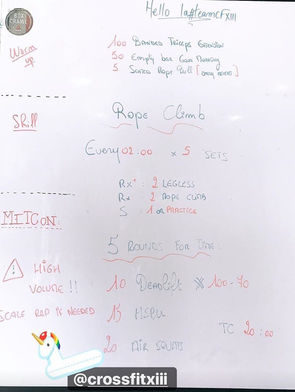 Hello la#teamCFXIII
Warm up
100 Banded Triceps Extension
50 Empty bar Good Morning
5 Seated Rope Pull
Skill
Rope Climb
Every 02:00 x 5 SETS
Rx+ : 2 LEGLESS
Rx : 2 ROPE CLIMB
S : 1 or PRACTICE
METCON
5 ROUNDS FOR TIME
HIGH VOLUME !!
SCALE REP IF NEEDED
10 Deadlift 100-70
15 HSPU
20 AIR SQUATS
TC 20:00
@crossfitxiii